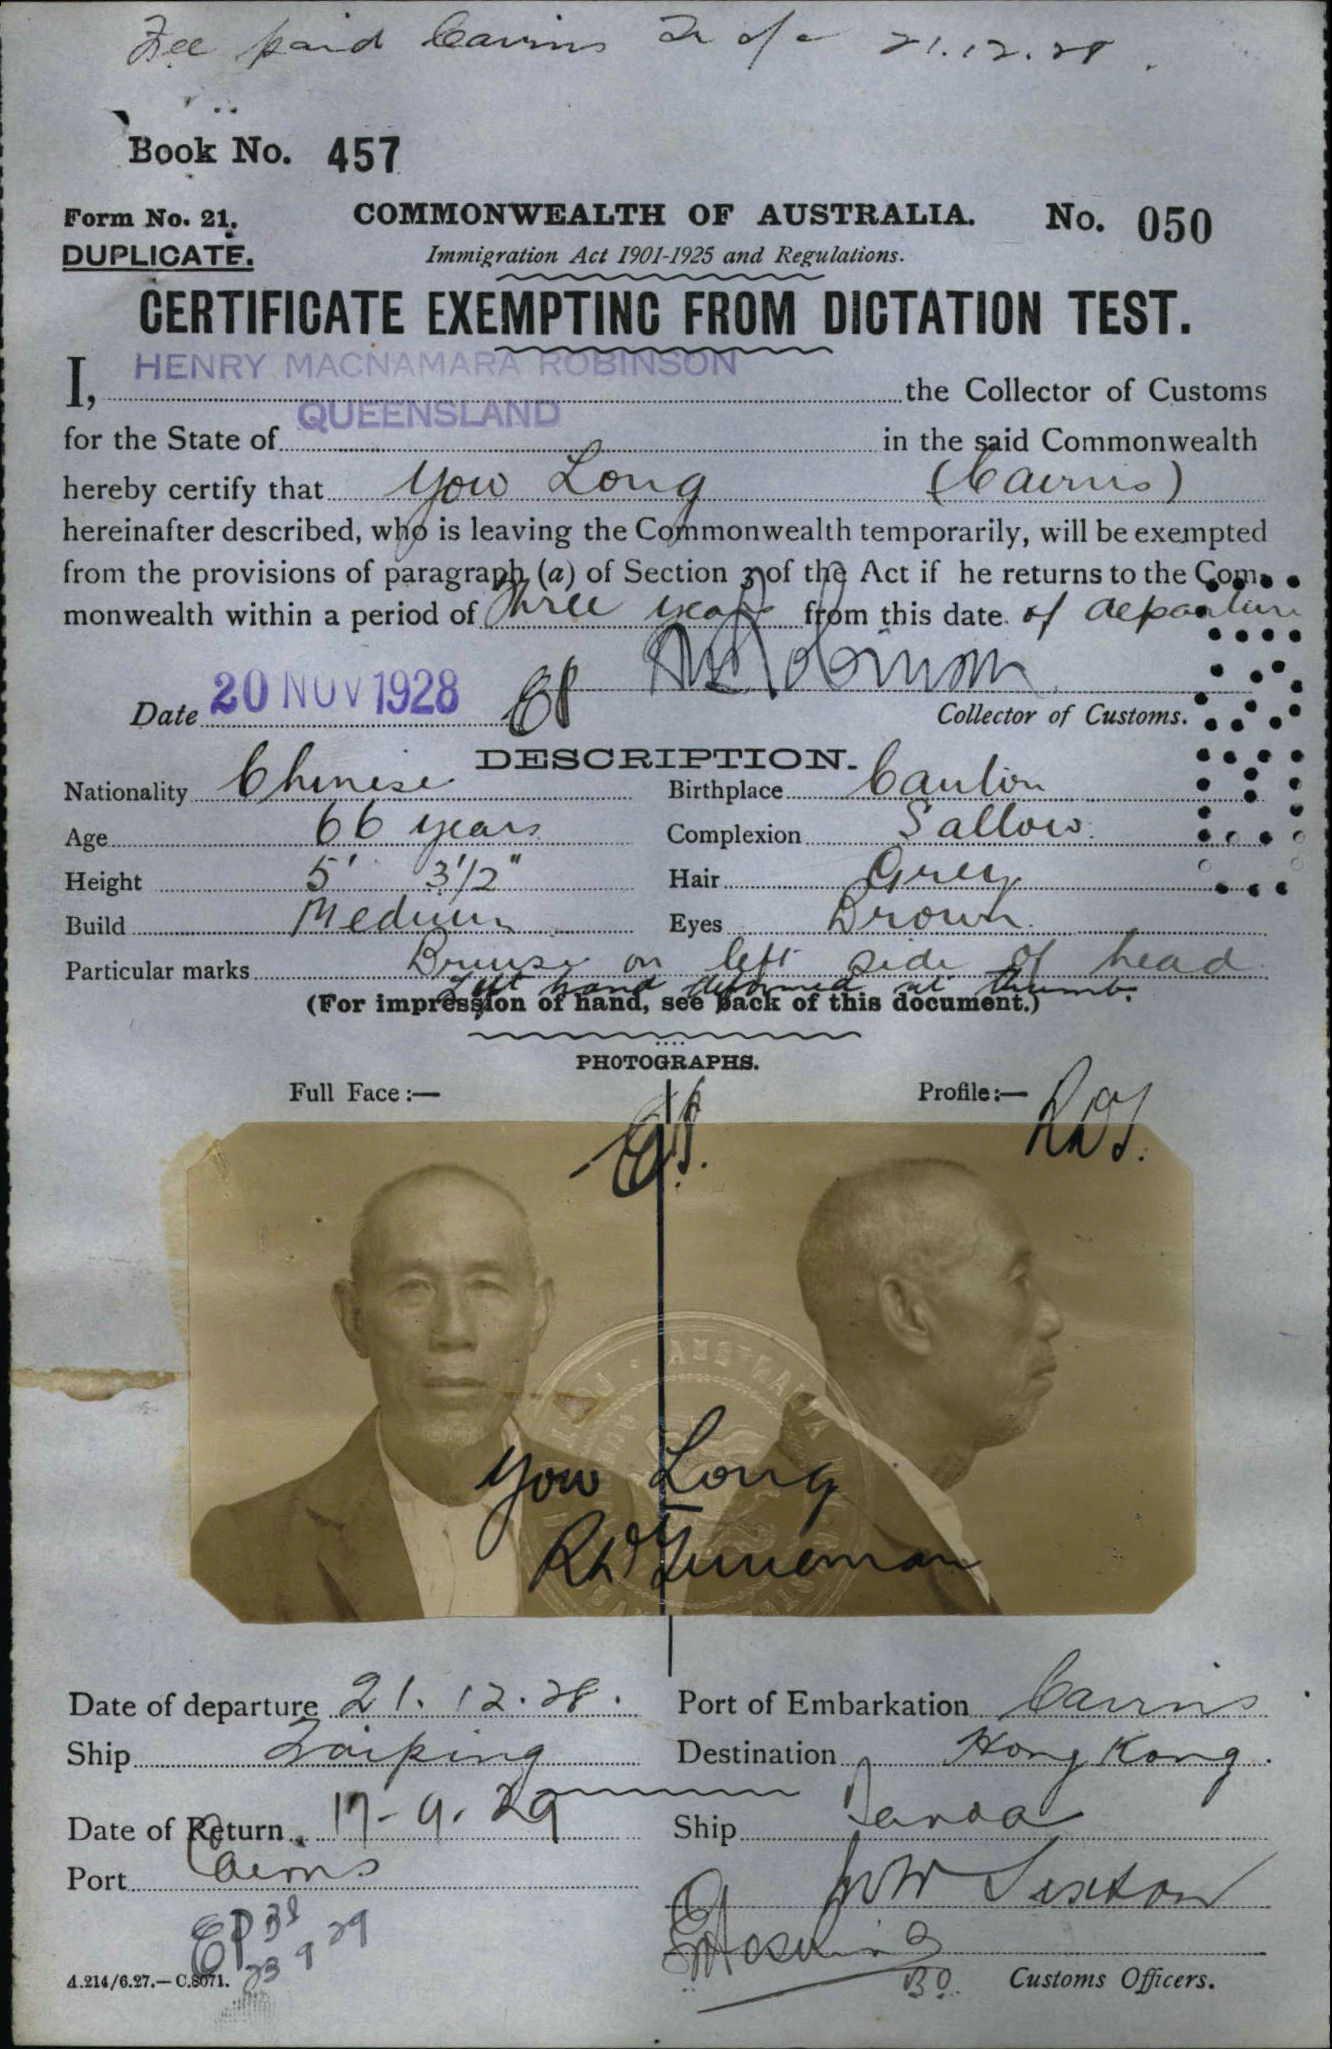 Fee paid Cairns 21.12.28.
Book No. 457
Form No. 21. COMMONWEALTH OF AUSTRALIA. No. 050
DUPLICATE. Immigration Act 1901-1925 and Regulations.
CERTIFICATE EXEMPTING FROM DICTATION TEST.
I, HENRY MACNAMARA ROBINSON the Collector of Customs
for the State of QUEENSLAND in the said Commonwealth
hereby certify that Yow Long (Cairns)
hereinafter described, who is leaving the Commonwealth temporarily, will be exempted
from the provisions of paragraph (a) of Section 3 of the Act if he returns to the Com-
monwealth within a period of Three years from this date of departure
HM Robinson
Date 20 NOV 1928 EP Collector of Customs.
DESCRIPTION.
Nationality Chinese Birthplace Canton
Age 66 years Complexion Sallow.
Height 5' 3 1/2" Hair Grey
Build Medium Eyes Brown.
Particular marks Bruise on left side of head
Left hand deformed at thumb.
(For impression of hand, see back of this document.)
PHOTOGRAPHS.
Full Face:— Profile:—
Yow Long
Date of departure 21.12.28. Port of Embarkation Cairns.
Ship Taiping Destination Hong Kong.
Date of Return 17-9.29 Ship Tanda
Port Cairns
EP 23 9 29
A.214/6.27.—C.8071. Customs Officers.